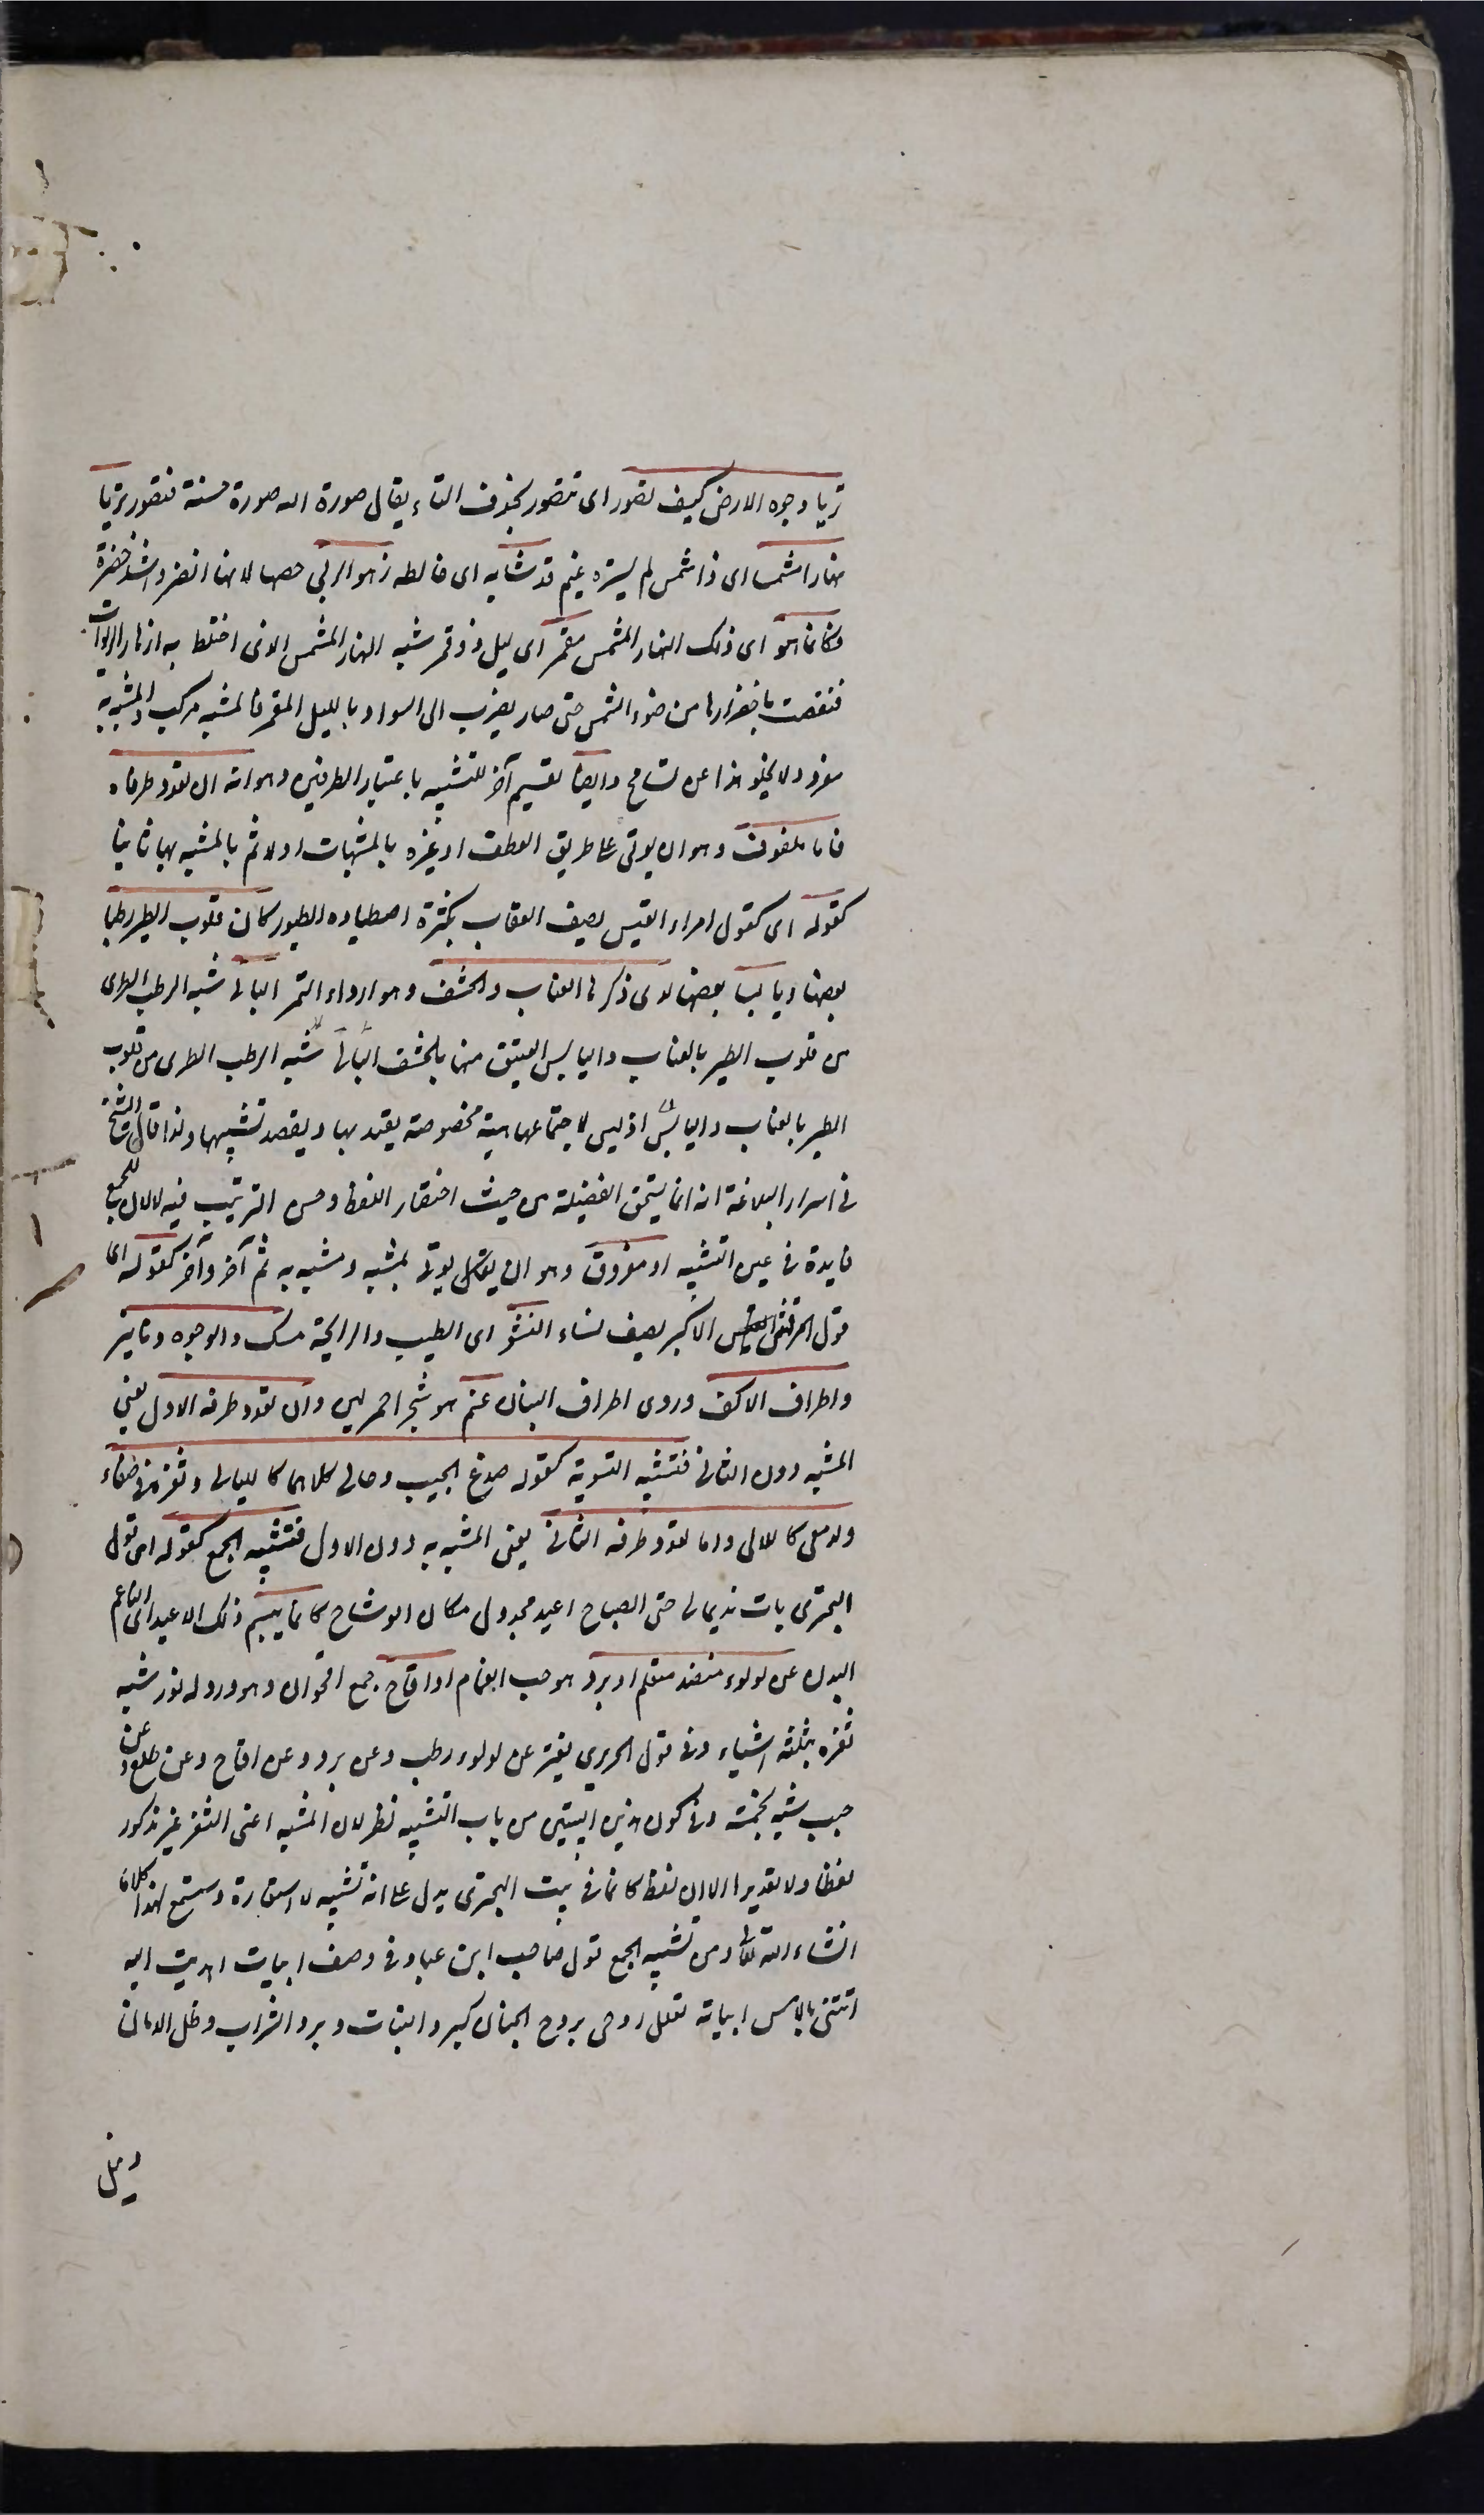 تريا وجوه الارض كيف تصور اى تتصور بحذف التاء يقال صورة الله صورة حسنة فتصور تريا
نهارا مشمسا اى ذا شمس لم يستره غيم قد شابه اى خالطه زهر الربى خصها لانها انضر واشد خضرة
فكانما هو اى ذلك النهار المشمس مقمر اى ليل ذو قمر شبه النهار المشمس الذى اختلط به ازهار الربوات
فنقصت باخضرارها من ضوء الشمس حتى صار يضرب الى السواد بالليل المقمر فالمشبه مركب والمشبه به
مفرد ولا يخلو هذا عن تسامح وايضا تقسيم آخر للتشبيه باعتبار الطرفين وهو انه ان تعدد طرفاه
فاما ملفوف وهو ان يوتى على طريق العطف او غيره بالمشبهات اولا ثم بالمشبه بها ثانيا
كقوله اى كقول امراء القيس يصف العقاب بكثرة اصطياده الطيور كان قلوب الطير رطبا
بعضها ويابسا بعضها لدى وكرها العناب والحشف وهو ارداء التمر البالى شبه الرطب الطرى
من قلوب الطير بالعناب واليابس العتيق منها بالحشف البالى شبه الرطب الطرى من قلوب
الطير بالعناب واليابس اذ ليس لاجتماعها هيئة مخصوصة يعتد بها ويقصد تشبيهها ولذا قال الشيخ
فى اسرار البلاغة انه انما يستحق الفضيلة من حيث اختصار اللفظ وحسن الترتيب فيه لا لان للجمع
فايدة فى عين التشبيه او مفروق وهو ان يوتى بمشبه ومشبه به ثم آخر وآخر كقوله اى
قول المرقش الاكبر يصف نساء النشر اى الطيب والرايحة مسك والوجوه دنانير
واطراف الاكف وروى اطراف البنان عنم هو شجر احمر لين وان تعدد طرفه الاول يعنى
المشبه دون الثانى فتشبيه التسوية كقوله صدغ الحبيب وحالى كلاهما كالليالى وثغره فى صفاء
وادمعى كاللالى واما تعدد طرفه الثانى يعنى المشبه به دون الاول فتشبيه الجمع كقوله اى قول
البحترى بات نديما لى حتى الصباح اغيد مجدول مكان الوشاح كانما يبسم ذلك الاغيد اى الناعم
البدن عن لولوء منضد منظم او برد هو حب الغمام او اقاح جمع اقحوان وهو ورد له نور شبه
ثغره بثلثة اشياء وفى قول الحريرى يفتر عن لولوء رطب وعن برد وعن اقاح وعن طلع وعن
حبب شبه بخمسة وفى كون هذين البيتين من باب التشبيه نظر لان المشبه اعنى الثغر غير مذكور
لفظا ولا تقديرا الا ان لفظ كانما فى بيت البحترى يدل على انه تشبيه لا استعارة وستسمع لهذا كلاما
انشاء الله تعالى ومن تشبيه الجمع قول صاحب ابن عباد فى وصف ابيات اهديت اليه
اتتنى بالامس ابياته تعلل روحى بروح الجنان كبرد الشباب وبرد الشراب وظل الامان
ونيل